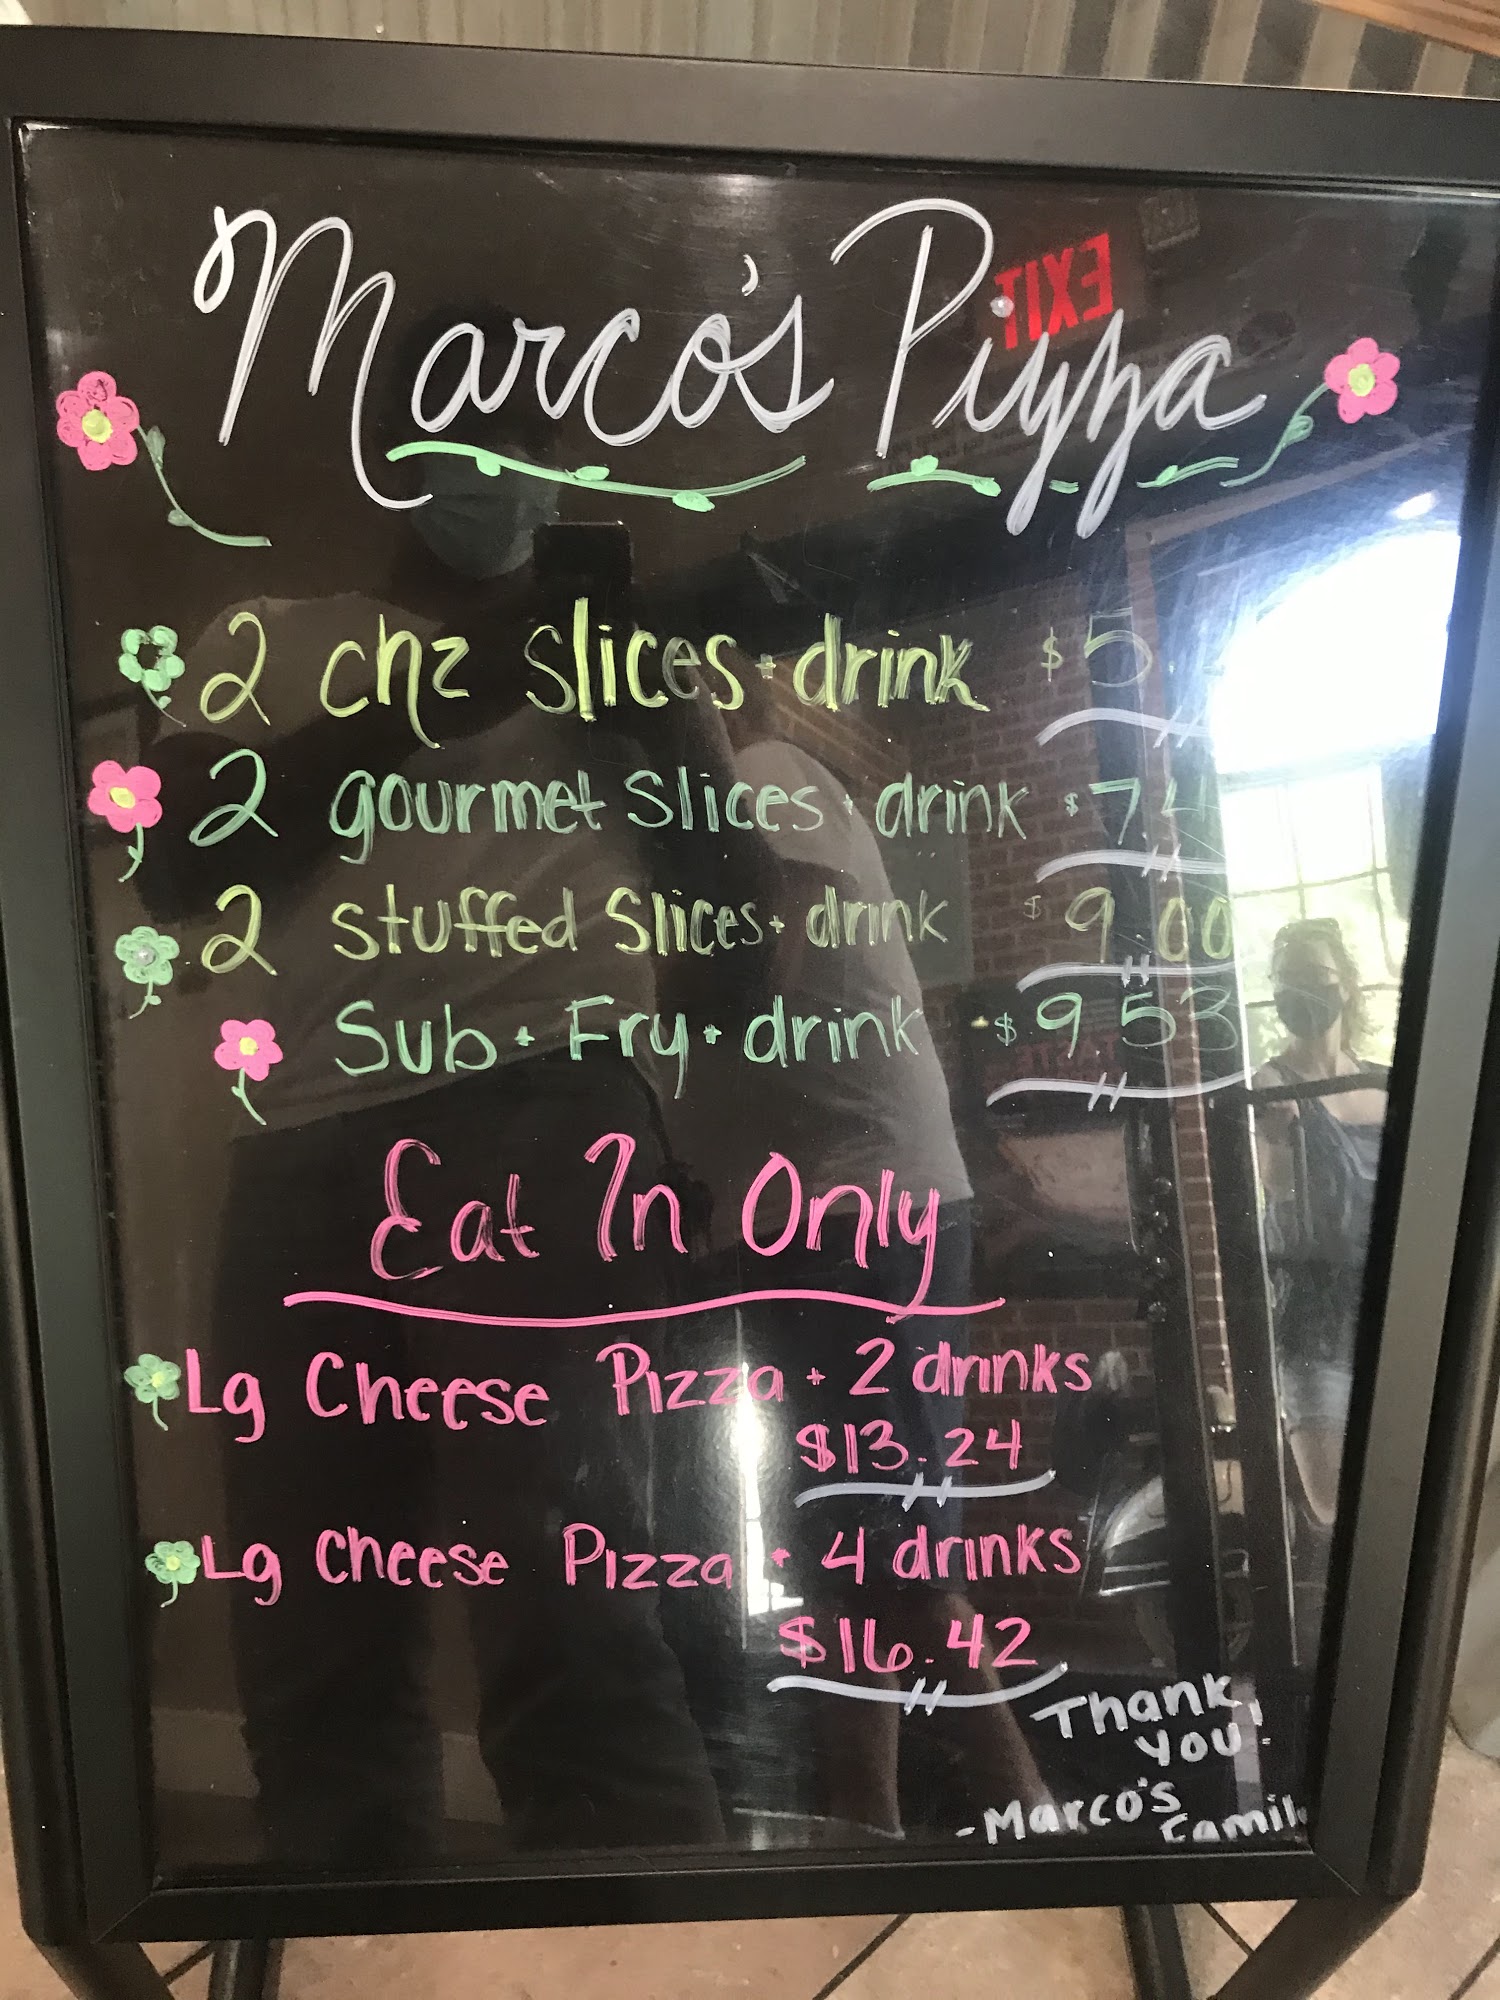 Marco's Pizza
EXIT
2 chz slices + drink $5
2 gourmet slices + drink $7.4
2 stuffed slices + drink $9.00
Sub + Fry + drink $9.53
Eat In Only
Lg Cheese Pizza + 2 drinks
$13.24
Lg Cheese Pizza + 4 drinks
$16.42
Thank
you!
- Marco's
Famil